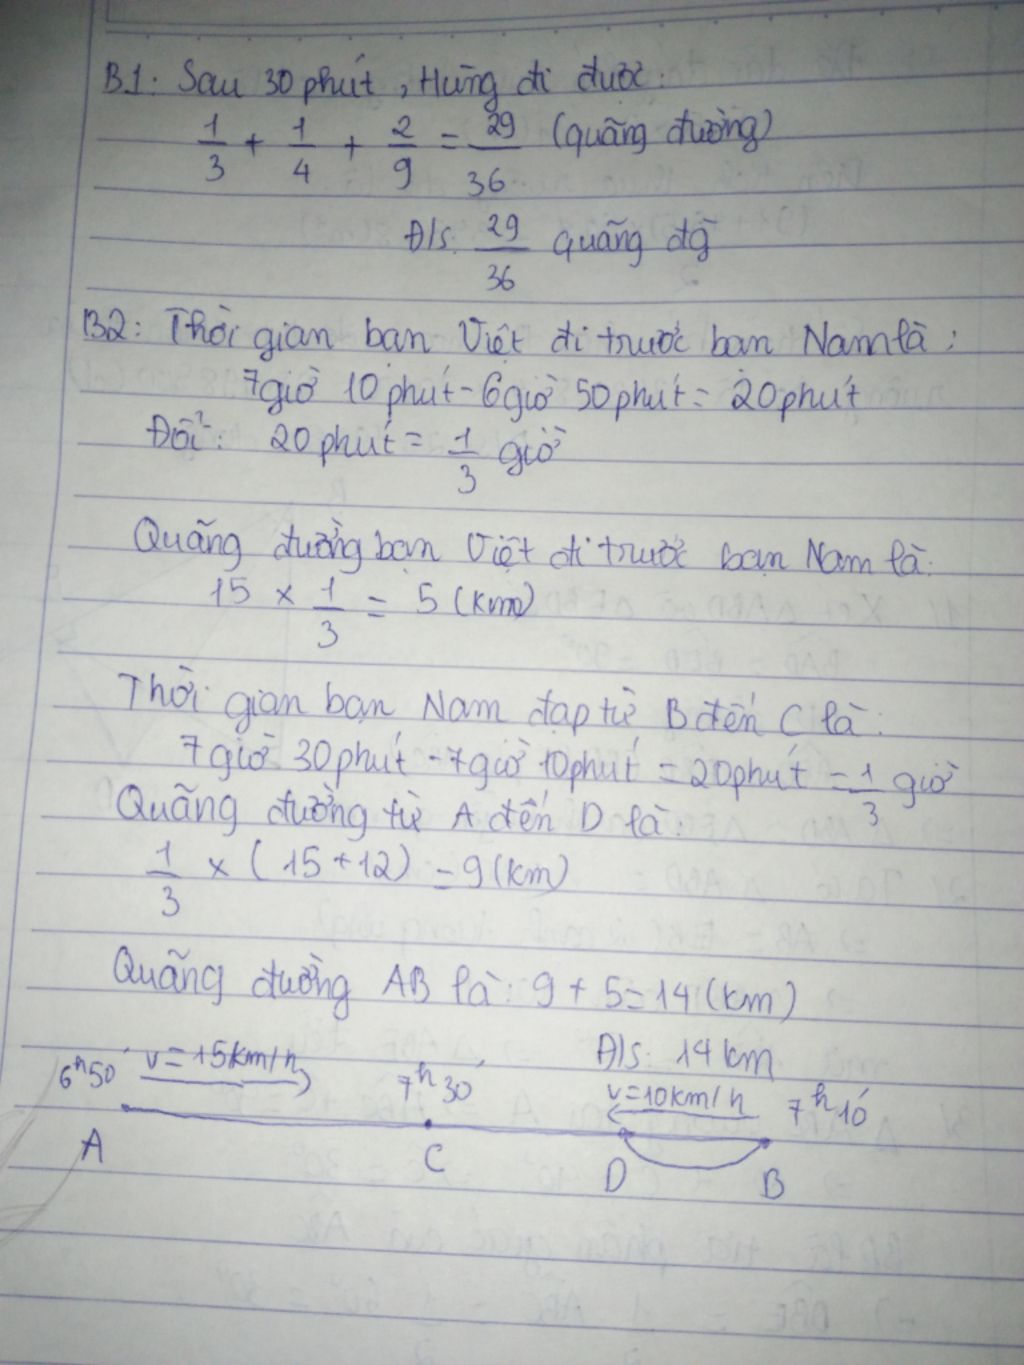 B1: Sau 30 phút, Hùng đi được:
1/3 + 1/4 + 2/9 = 29/36 (quãng đường)
Đ/s: 29/36 quãng đg
B2: Thời gian bạn Việt đi trước bạn Nam là:
7giờ 10 phút - 6giờ 50 phút = 20 phút
Đổi: 20 phút = 1/3 giờ
Quãng đường bạn Việt đi trước bạn Nam là:
15 × 1/3 = 5 (km)
Thời gian bạn Nam đạp từ B đến C là:
7giờ 30 phút - 7giờ 10 phút = 20 phút = 1/3 giờ
Quãng đường từ A đến D là:
1/3 × (15 + 12) = 9 (km)
Quãng đường AB là: 9 + 5 = 14 (km)
Đ/s: 14 km
6h50' v = 15km/h 7h30' v = 10km/h 7h10'
A C D B